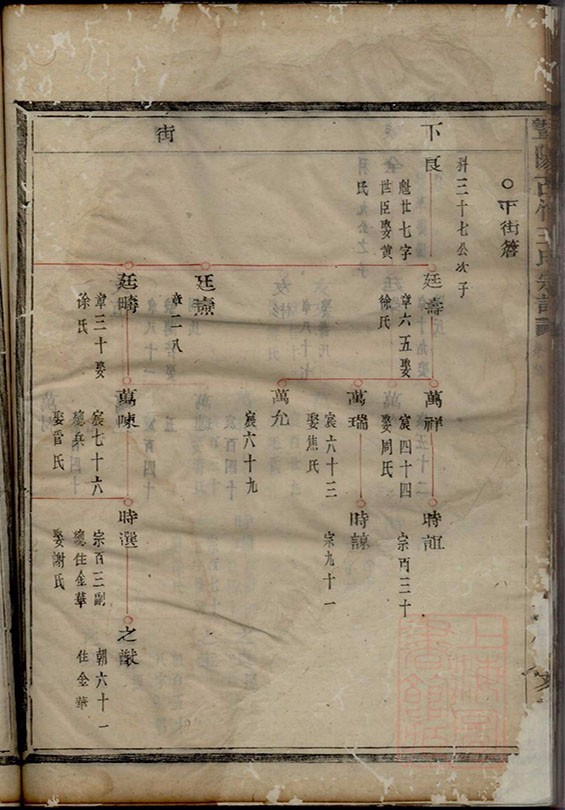 下街
〇下街簷
下良
科三十七公次子
彪廿七字
世臣娶黄
氏
廷壽
章六五娶
徐氏
廷熹
章二八
廷疇
章三十娶
徐氏
萬祥
宸四十四
娶周氏
萬瑞
宸六十三
娶焦氏
萬允
宸六十九
萬陳
宸七十六
總兵
娶管氏
時誼
宗百三十
時諒
宗九十一
時選
宗百三副
總住金華
娶謝氏
之猷
朝六十一
住金華